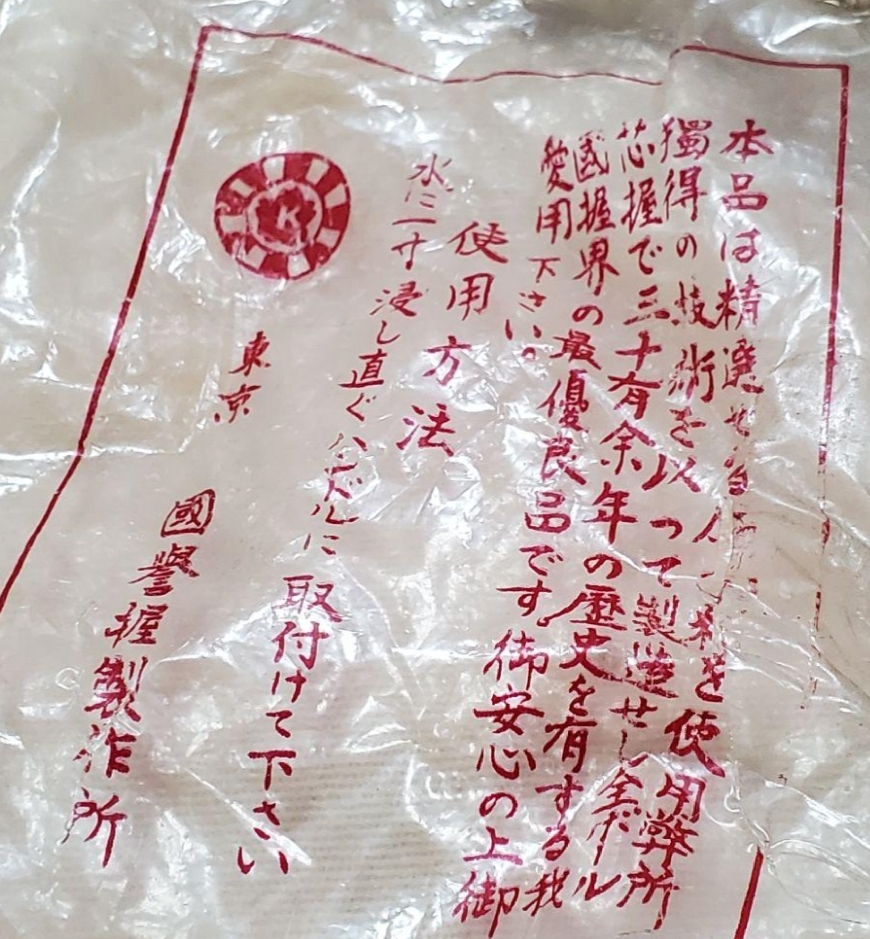 本品は精選せる を使用弊所
獨得の技術を以って製造せし金ボール
芯握で三十有余年の歴史を有する我
國握界の最優良品です。御安心の上御
愛用下さい。
使用方法
水に一寸浸し直ぐハンドルに取付けて下さい
K
東京
國譽握製作所